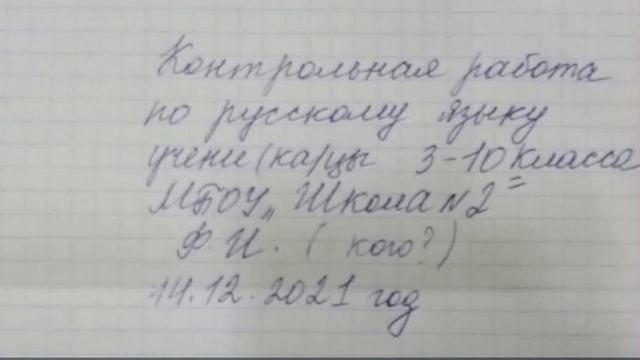 Контрольная работа
по русскому языку
учени(ка)цы 3-10 класса
МБОУ „Школа №2"
Ф.И. (кого?)
14.12.2021 год